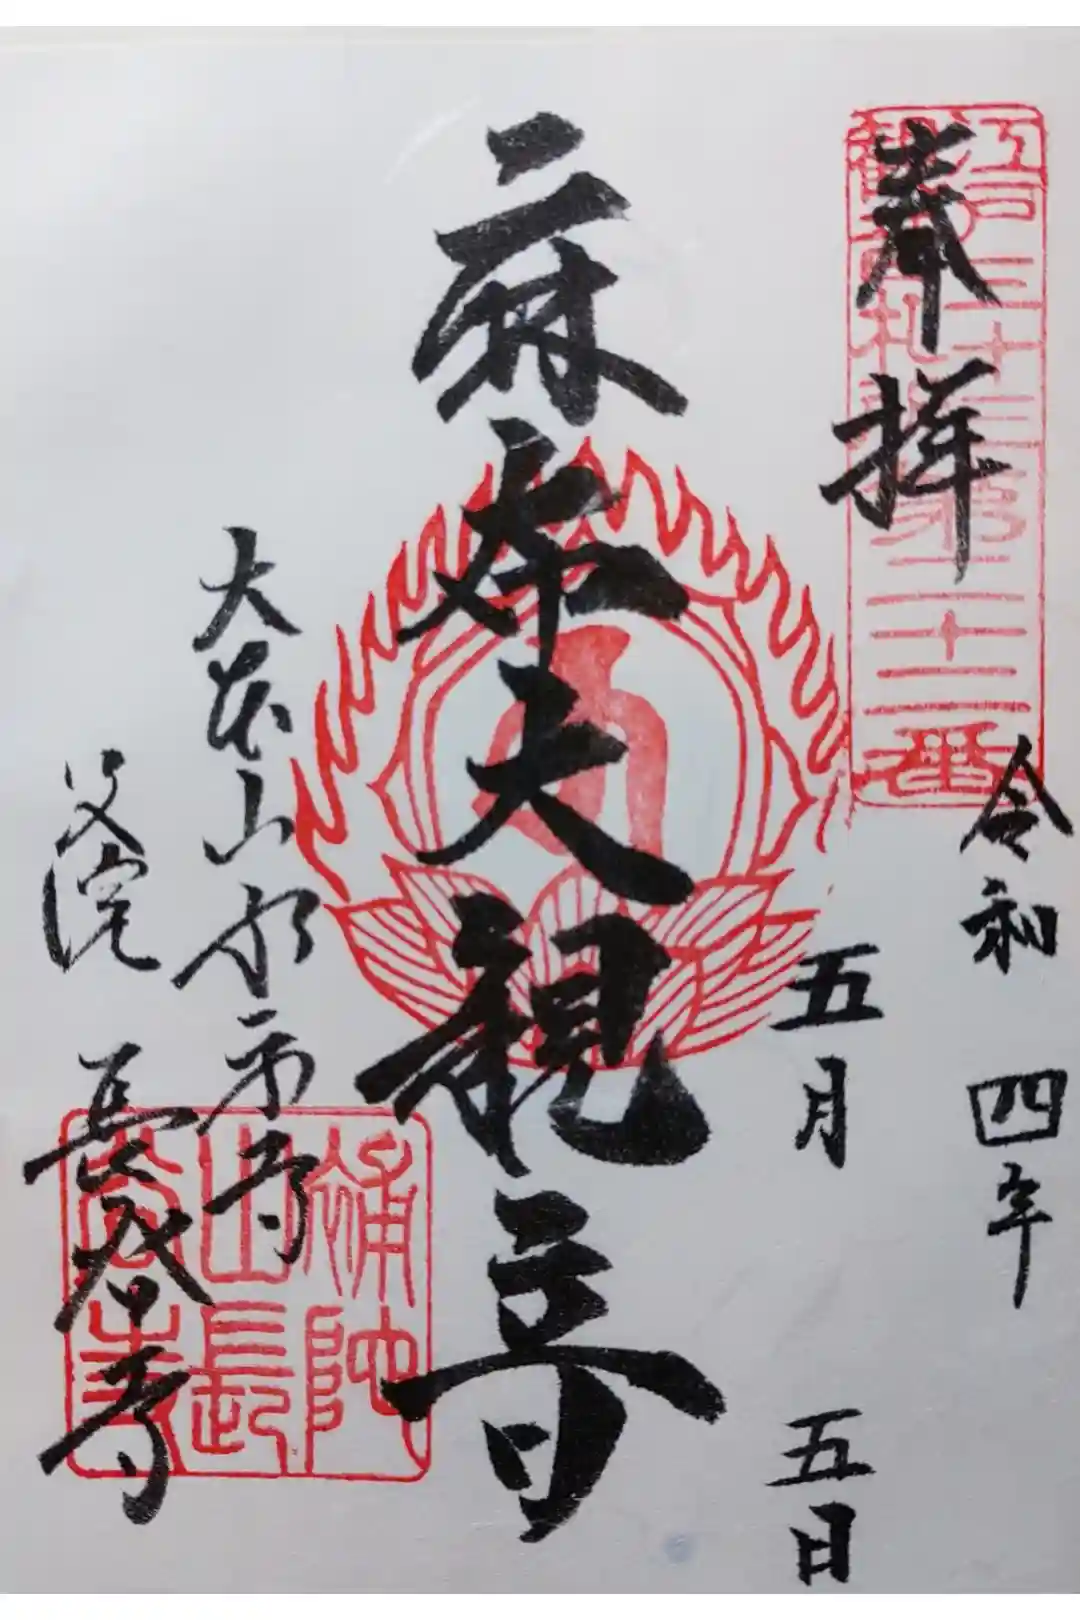 奉拝
江戸三十三
観音札所
第二十二番
令和四年
五月五日
麻布大観音
大本山永平寺
別院 長谷寺
補陀
山長
谷寺